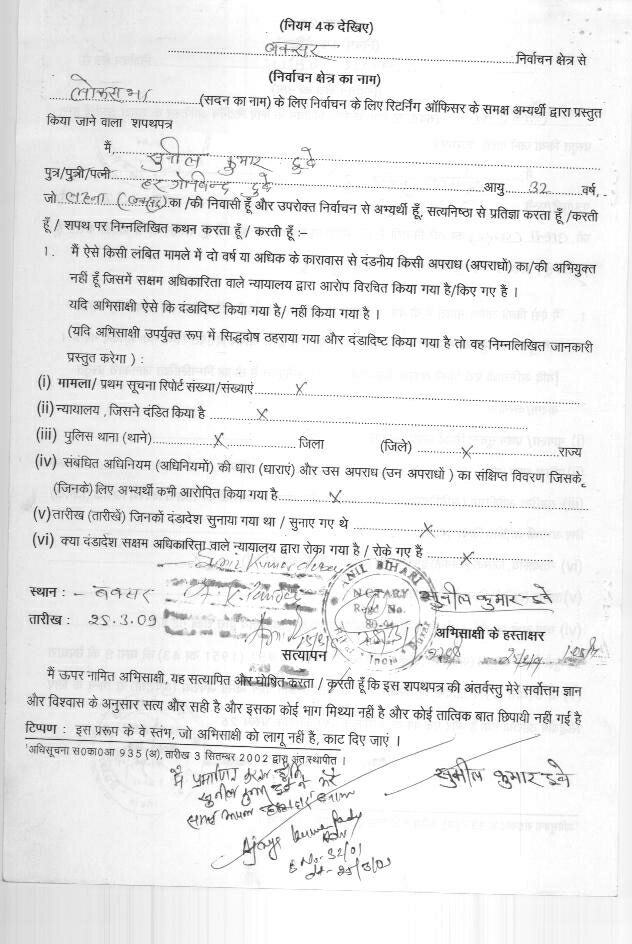 (नियम 4क देखिए)
बक्सर निर्वाचन क्षेत्र से
(निर्वाचन क्षेत्र का नाम)
लोकसभा (सदन का नाम) के लिए निर्वाचन के लिए रिटर्निंग ऑफिसर के समक्ष अभ्यर्थी द्वारा प्रस्तुत
किया जाने वाला शपथपत्र
मैं, सुनील कुमार दुबे
पुत्र/पुत्री/पत्नी हर गोविन्द दुबे आयु 32 वर्ष,
जो (बक्सर) का /की निवासी हूँ और उपरोक्त निर्वाचन से अभ्यर्थी हूँ, सत्यनिष्ठा से प्रतिज्ञा करता हूँ /करती
हूँ / शपथ पर निम्नलिखित कथन करता हूँ / करती हूँ :–
1. मैं ऐसे किसी लंबित मामले में दो वर्ष या अधिक के कारावास से दंडनीय किसी अपराध (अपराधों) का/की अभियुक्त
नहीं हूँ जिसमें सक्षम अधिकारिता वाले न्यायालय द्वारा आरोप विरचित किया गया है/किए गए हैं ।
यदि अभिसाक्षी ऐसे कि दंडादिष्ट किया गया है/ नहीं किया गया है ।
(यदि अभिसाक्षी उपर्युक्त रूप में सिद्धदोष ठहराया गया और दंडादिष्ट किया गया है तो वह निम्नलिखित जानकारी
प्रस्तुत करेगा ) :
(i) मामला/ प्रथम सूचना रिपोर्ट संख्या/संख्याएं X
(ii) न्यायालय , जिसने दंडित किया है X
(iii) पुलिस थाना (थाने) X जिला (जिले) X राज्य
(iv) संबंधित अधिनियम (अधिनियमों) की धारा (धाराएं) और उस अपराध (उन अपराधों ) का संक्षिप्त विवरण जिसके
(जिनके) लिए अभ्यर्थी कभी आरोपित किया गया है X
(v) तारीख (तारीखें) जिनकों दंडादेश सुनाया गया था / सुनाए गए थे X
(vi) क्या दंडादेश सक्षम अधिकारिता वाले न्यायालय द्वारा रोका गया है / रोके गए हैं X
स्थान : - बक्सर
सुनील कुमार दुबे
NOTARY
Regd. No.
तारीख : 25.3.09
अभिसाक्षी के हस्ताक्षर
सत्यापन
मैं ऊपर नामित अभिसाक्षी, यह सत्यापित और घोषित करता / करती हूँ कि इस शपथपत्र की अंतर्वस्तु मेरे सर्वोत्तम ज्ञान
और विश्वास के अनुसार सत्य और सही है और इसका कोई भाग मिथ्या नहीं है और कोई तात्विक बात छिपायी नहीं गई है
टिप्पण : इस प्ररूप के वे स्तंभ, जो अभिसाक्षी को लागू नहीं हैं, काट दिए जाएं ।
¹अधिसूचना स0का0आ 935 (अ), तारीख 3 सितम्बर 2002 द्वारा अंत:स्थापित ।
सुनील कुमार दुबे